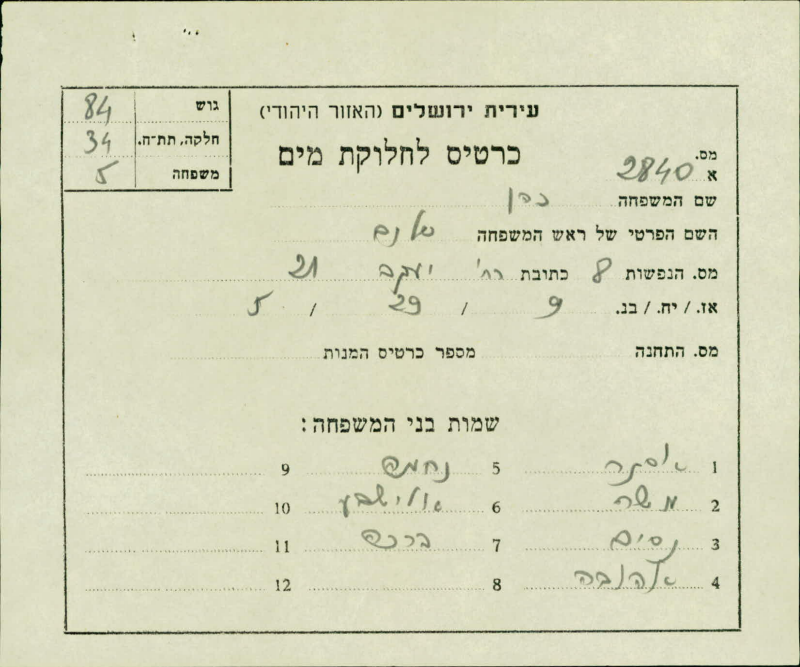 עירית ירושלים (האזור היהודי)
כרטיס לחלוקת מים
גוש 84
חלקה, תת־ח. 34
משפחה 5
מס. א 2840
שם המשפחה כהן
השם הפרטי של ראש המשפחה שלום
מס. הנפשות 8 כתובת רח' יעקב 21
אז. / יח. / בנ. 9 / 29 / 5
מס. התחנה מספר כרטיס המנות
שמות בני המשפחה:
1 אסתר 5 נחמה 9
2 משה 6 אלישבע 10
3 נסים 7 ברכה 11
4 אהובה 8 12